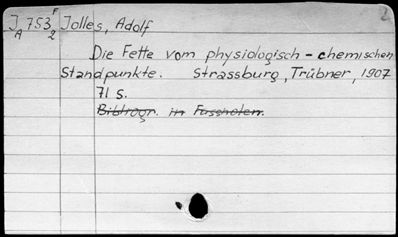 J 753 F Jolles, Adolf
A 2
Die Fette vom physiologisch-chemischen
Standpunkte. Strassburg, Trübner, 1907
71 S.
Bibliogr. in Fussnoten.